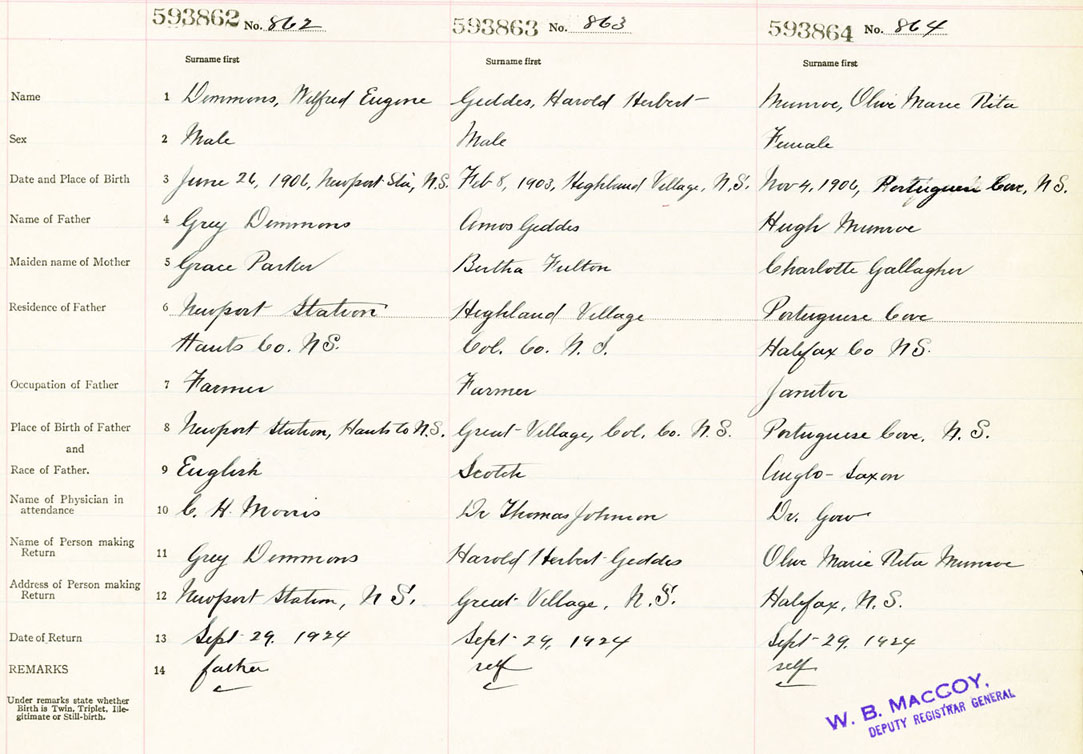 593862 No. 862 593863 No. 863 593864 No. 864
Surname first Surname first Surname first
Name 1 Dimmons, Wilfred Eugene Geddes, Harold Herbert Munroe, Olive Marie Rita
Sex 2 Male Male Female
Date and Place of Birth 3 June 26, 1906, Newport Sta, N.S. Feb 8, 1903, Highland Village, N.S. Nov 4, 1906, Portuguese Cove, N.S.
Name of Father 4 Grey Dimmons Amos Geddes Hugh Munroe
Maiden name of Mother 5 Grace Parker Bertha Fulton Charlotte Gallagher
Residence of Father 6 Newport Station Highland Village Portuguese Cove
Hants Co. N.S. Col. Co. N.S. Halifax Co N.S.
Occupation of Father 7 Farmer Farmer Janitor
Place of Birth of Father 8 Newport Station, Hants Co N.S. Great Village, Col. Co. N.S. Portuguese Cove, N.S.
and
Race of Father. 9 English Scotch Anglo-Saxon
Name of Physician in
attendance 10 C. H. Morris Dr Thomas Johnson Dr. Gow
Name of Person making
Return 11 Grey Dimmons Harold Herbert Geddes Olive Marie Rita Munroe
Address of Person making
Return 12 Newport Station, N.S. Great Village, N.S. Halifax, N.S.
Date of Return 13 Sept 29, 1924 Sept 29, 1924 Sept 29, 1924
REMARKS 14 father self self
Under remarks state whether
Birth is Twin, Triplet, Ille-
gitimate or Still-birth.
W. B. MacCOY,
DEPUTY REGISTRAR GENERAL